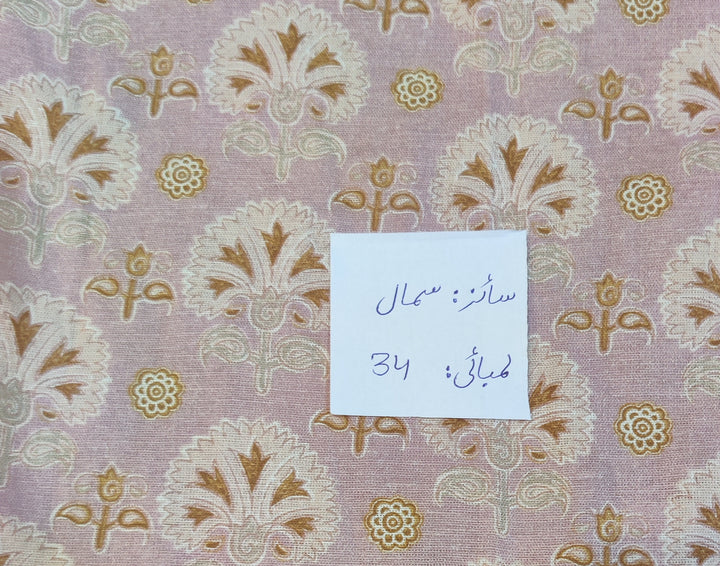 سائز: سمال
لمبائی: 34